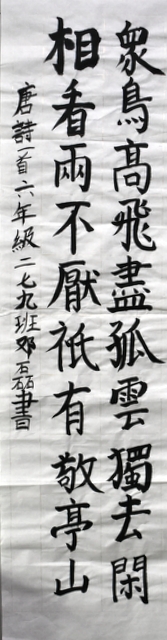 衆鳥高飛盡孤雲獨去閑
相看兩不厭祇有敬亭山
唐詩一首六年級二七九班邓磊書